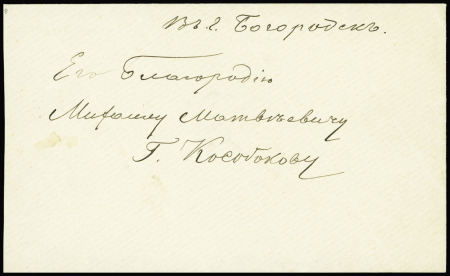 Въ г. Богородскъ.
Его Благородію
Михаилу Матвѣевичу
Г. Кособокову